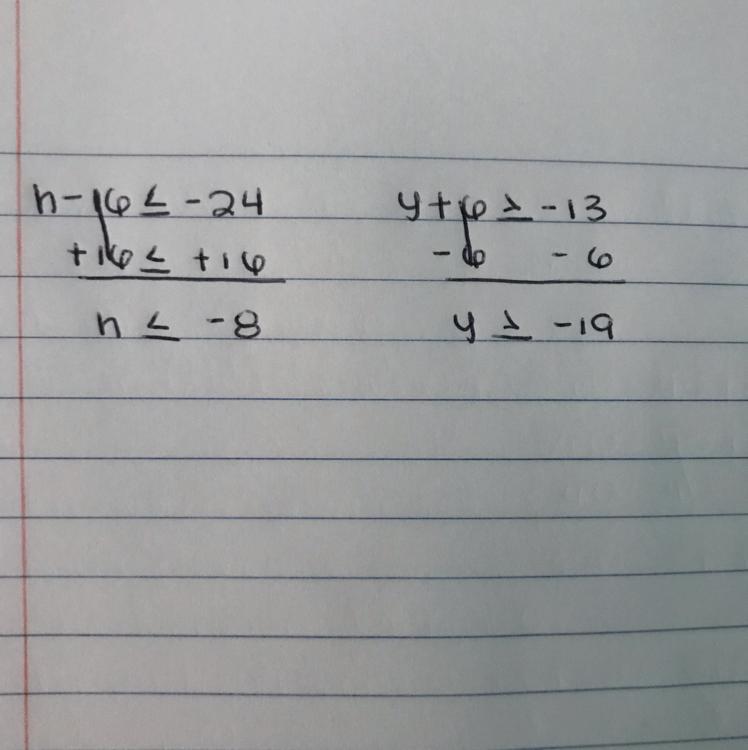 n-16 ≤ -24
+16 ≤ +16
n ≤ -8
y+6 ≥ -13
-6 -6
y ≥ -19